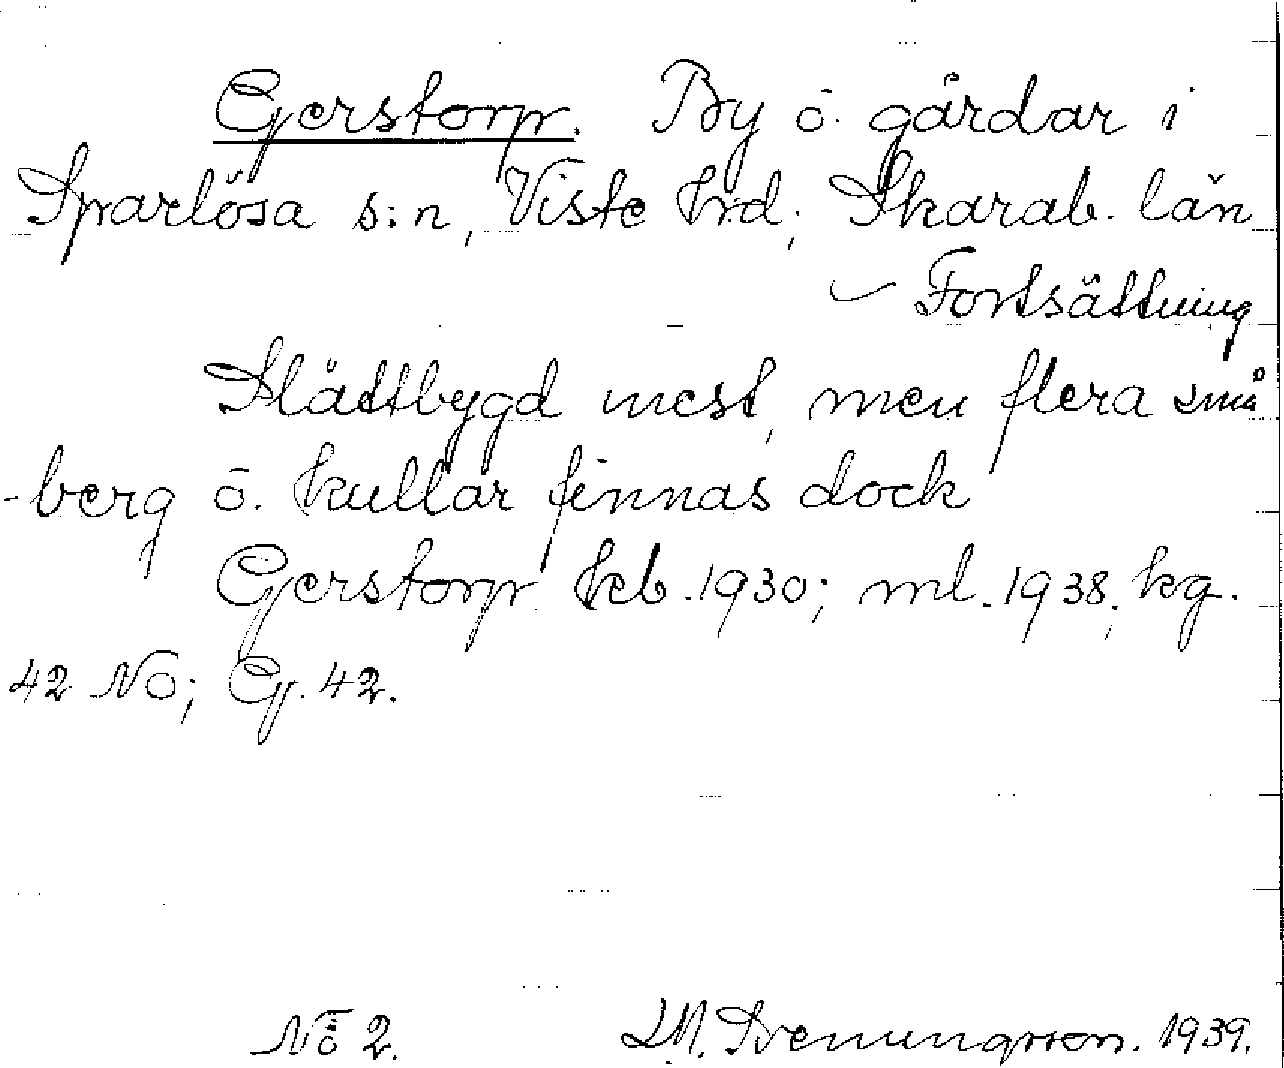 Gerstorp. By o. gårdar i
Sparlösa s:n, Viste hrd, Skarab. län
Fortsättning
Slättbygd mest, men flera små
-berg o. kullar finnas dock
Gerstorp kb. 1930; ml. 1938, kg.
42 NO; G. 42.
No 2. Svenungsson. 1939.